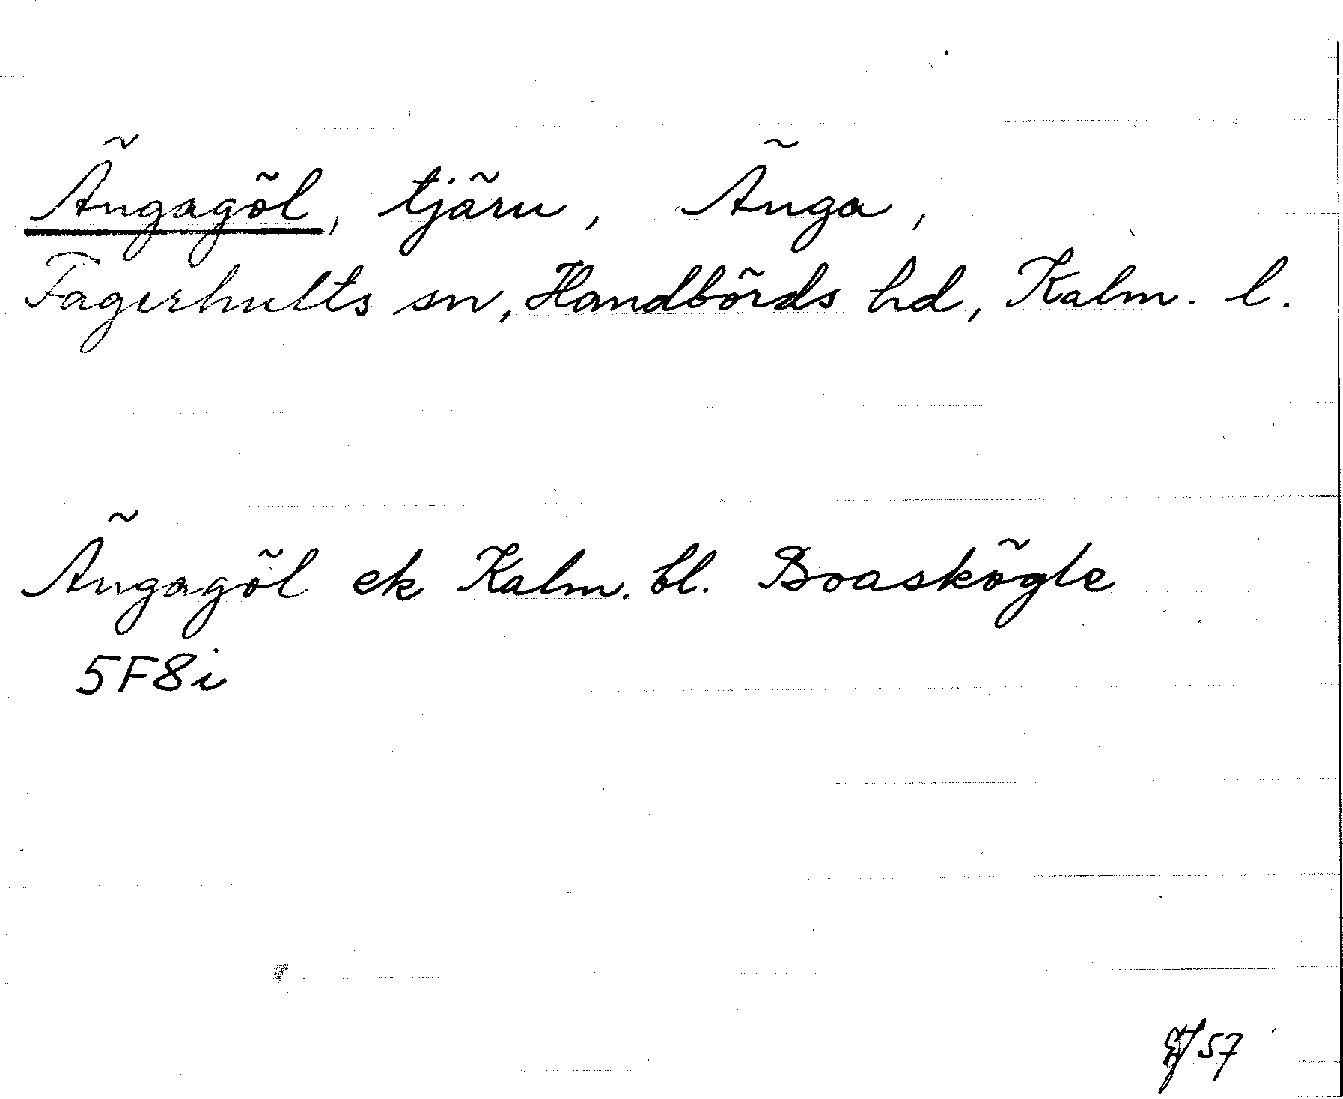 Ängagöl, tjärn, Änga,
Fagerhults sn, Handbörds hd, Kalm. l.
Ängagöl ek Kalm. bl. Boaskögle
5F8i
57